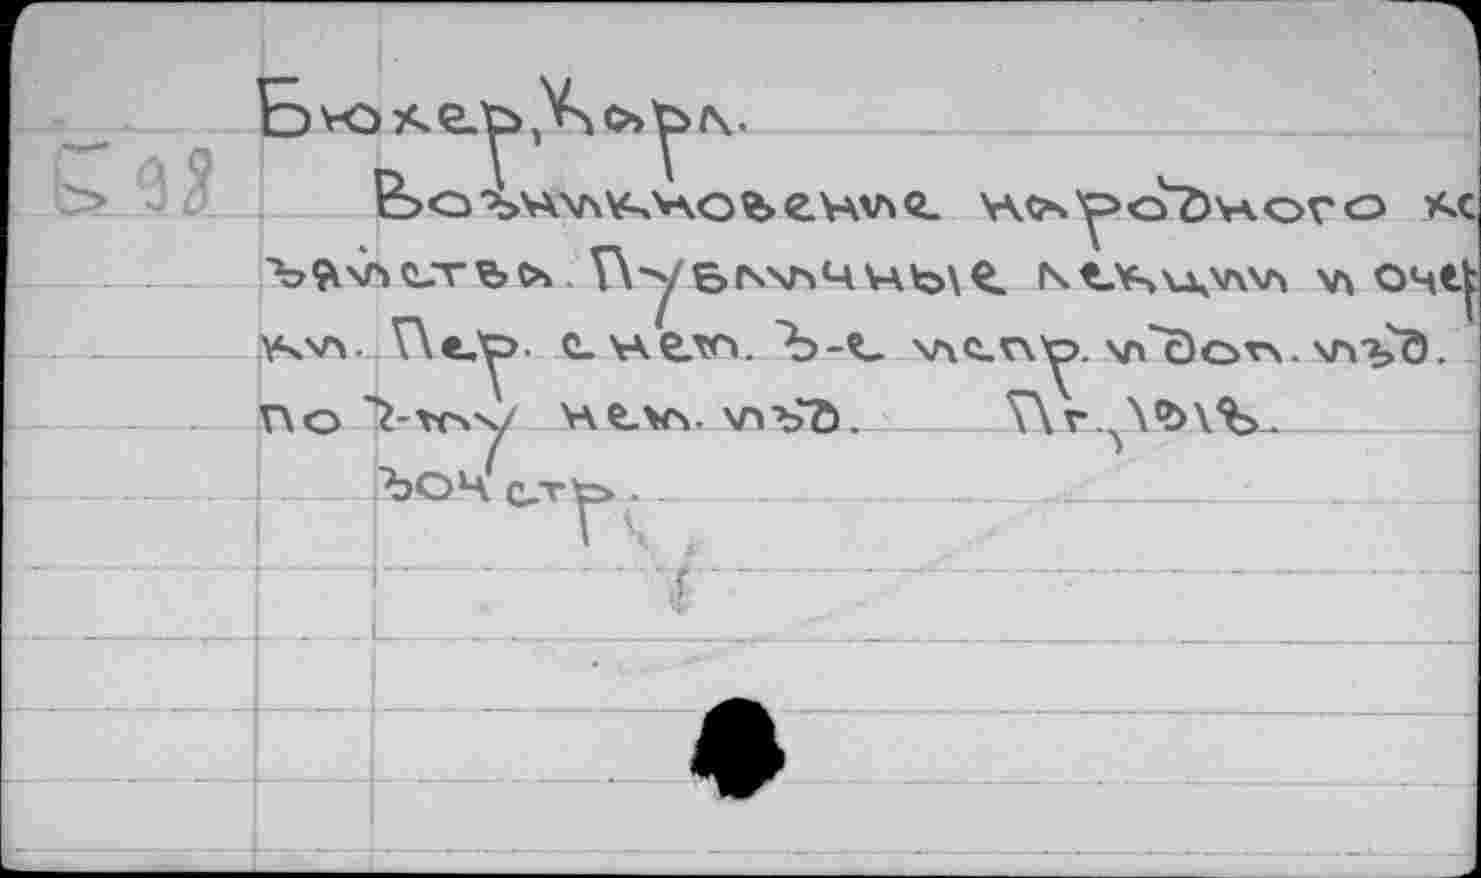 Бюхер, Карл.
Б98
Возникновение народного хо
зяйства. Публичные лекции и очер
ки. Пер. с нем. 3-е испр. и доп. изд.
по 2-му нем. изд. Пг., 1918.
304 стр.